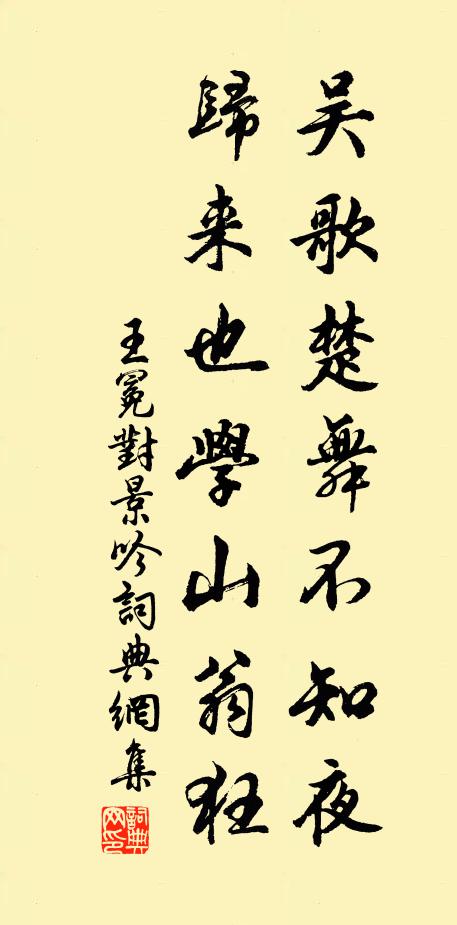 吴歌楚舞不知夜
歸来也學山翁狂
王冕對景吟詞典網集
詞典網印